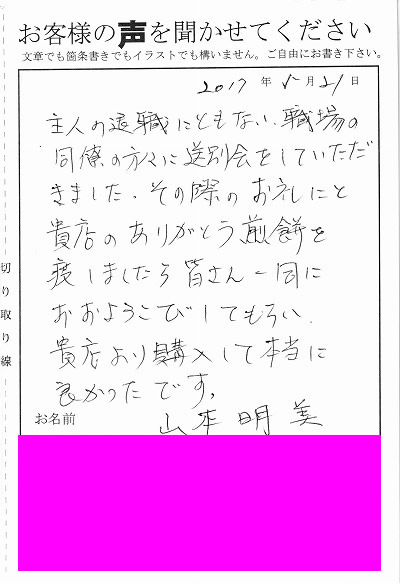 お客様の声を聞かせてください
文章でも箇条書きでもイラストでも構いません。ご自由にお書き下さい。
2017年5月21日
主人の退職にともない、職場の
同僚の方々に送別会をしていただ
きました。その際のお礼にと
貴店のありがとう煎餅を
渡しましたら皆さん一同に
おおようこびしてもらい、
貴店より購入して本当に
良かったです。
お名前 山本明美
切り取り線